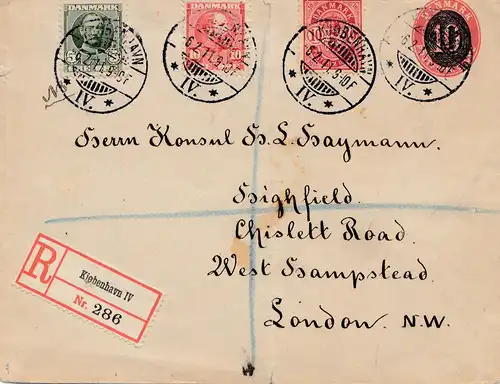 DANMARK
DANMARK
DANMARK
10
KJØBENHAVN
6.2.11.9-10F
* IV. *
Herrn Konsul H. L. Haymann.
Highfield.
Chislett Road.
West Hampstead.
London. N.W.
R
Kjøbenhavn IV
Nr. 286